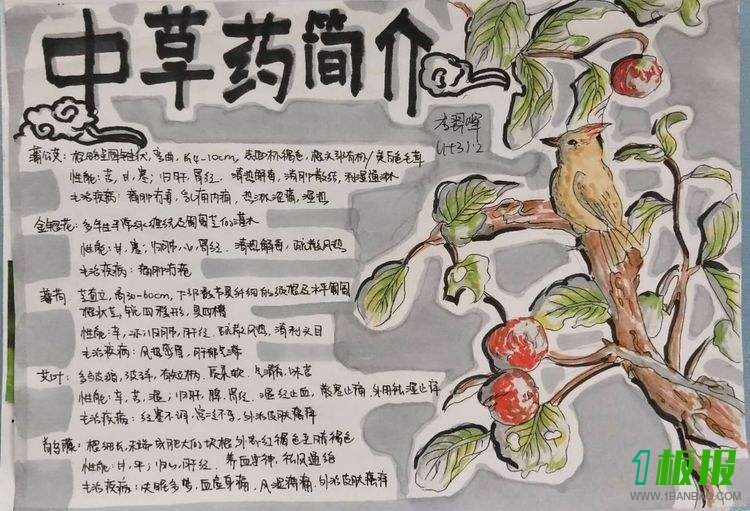 中草药简介
李羿晖
蒲公英：根略呈圆锥状，弯曲，长4-10cm，表面棕褐色，根头部有棕/黄白色茸
性能：苦，甘，寒；归肝，胃经．清热解毒，消肿散结，利湿通淋
主治疾病：痈肿疔毒，乳痈内痈，热淋涩痛，湿热
金银花：多年生半常绿缠绕及匍匐茎的灌木
性能：甘，寒；归肺，心，胃经．清热解毒，疏散风热
主治疾病：痈肿疔疮
薄荷：茎直立，高30-60cm，下部数节具纤细的须根及水平匍匐
根状茎，锐四棱形，具四槽
性能：辛，凉；归肺，肝经．疏散风热，清利头目
主治疾病：风热感冒，肝郁气滞
艾叶：多皱缩，破碎，有短柄．质柔软．气清香，味苦
性能：辛，苦，温；归肝，脾，肾经．温经止血，散寒止痛，外用祛湿止痒
主治疾病：经寒不调，宫冷不孕，外治皮肤瘙痒
首乌藤：根细长，末端成肥大的块根，外表红褐色至暗褐色
性能：甘，平；归心，肝经．养血安神，祛风通络
主治疾病：失眠多梦，血虚身痛，风湿痹痛，外治皮肤瘙痒
1板报
WWW.1BANBAO.COM